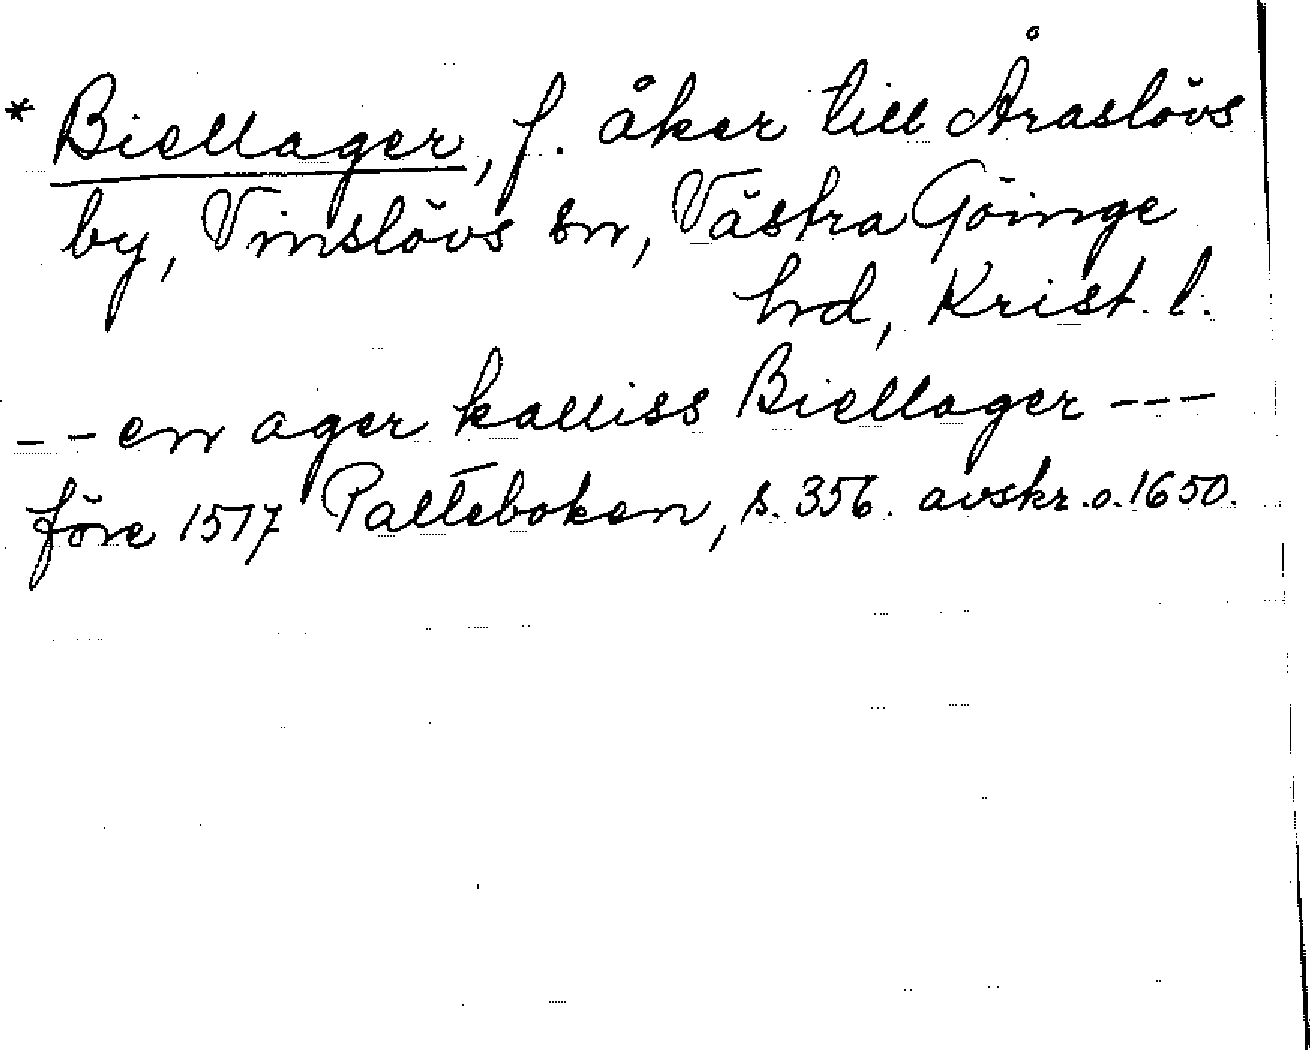 * Biellager, f. åker till Åraslövs
by, Vinslövs sn, Västra Göinge
hrd, Krist. l.
-- en ager kalliss Biellager ---
före 1517 Palteboken, s. 356. avskr. o. 1650.